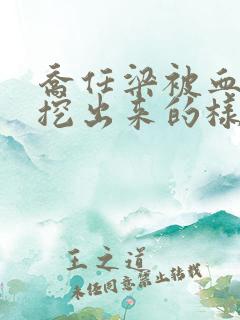 喬任梁被血
挖出来的樣
王之道
未经同意禁止转载